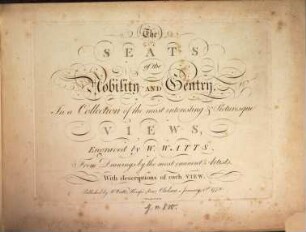 The
SEATS
of the
Nobility AND Gentry,
In a Collection of the most interesting & Picturesque
VIEWS,
Engraved by W. WATTS.
From Drawings by the most eminent Artists.
With descriptions of each VIEW.
Published by W. Watts, Kemp's Row, Chelsea, January 1st